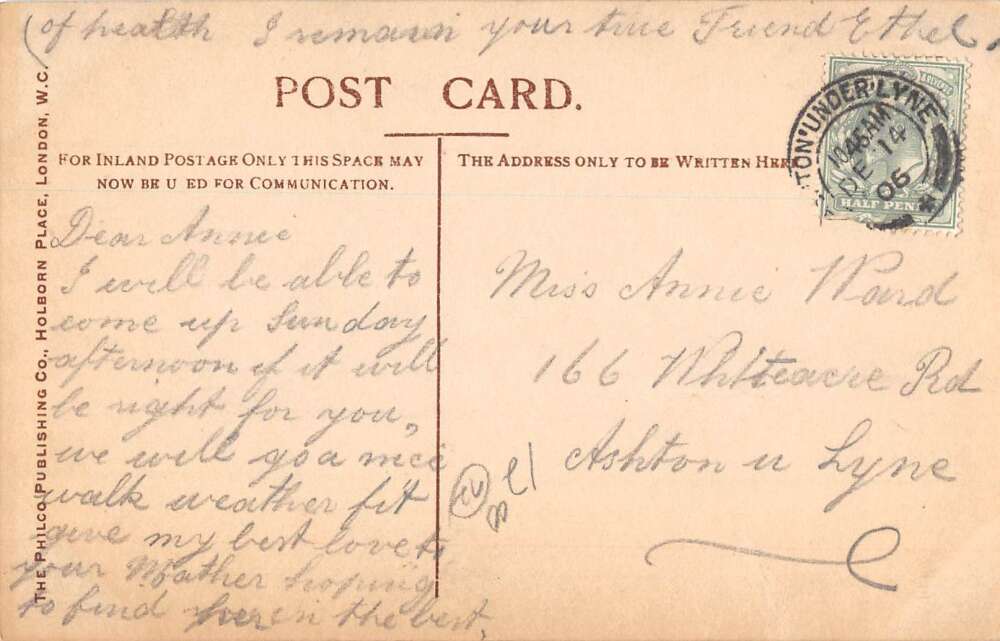 (of health I remain your true Friend Ethel.
POST CARD.
FOR INLAND POSTAGE ONLY THIS SPACE MAY
NOW BE U ED FOR COMMUNICATION.
THE ADDRESS ONLY TO BE WRITTEN HERE
TON UNDER LYNE
1045AM
DE 14
06
HALF PEN
THE PHILCO PUBLISHING CO., HOLBORN PLACE, LONDON, W.C.
Dear Annie
I will be able to
come up Sunday
afternoon if it will
be right for you,
we will go a nice
walk weather fit
give my best love to
your Mother hoping
to find her in the best,
Miss Annie Ward
166 Whiteacre Rd
Ashton u Lyne